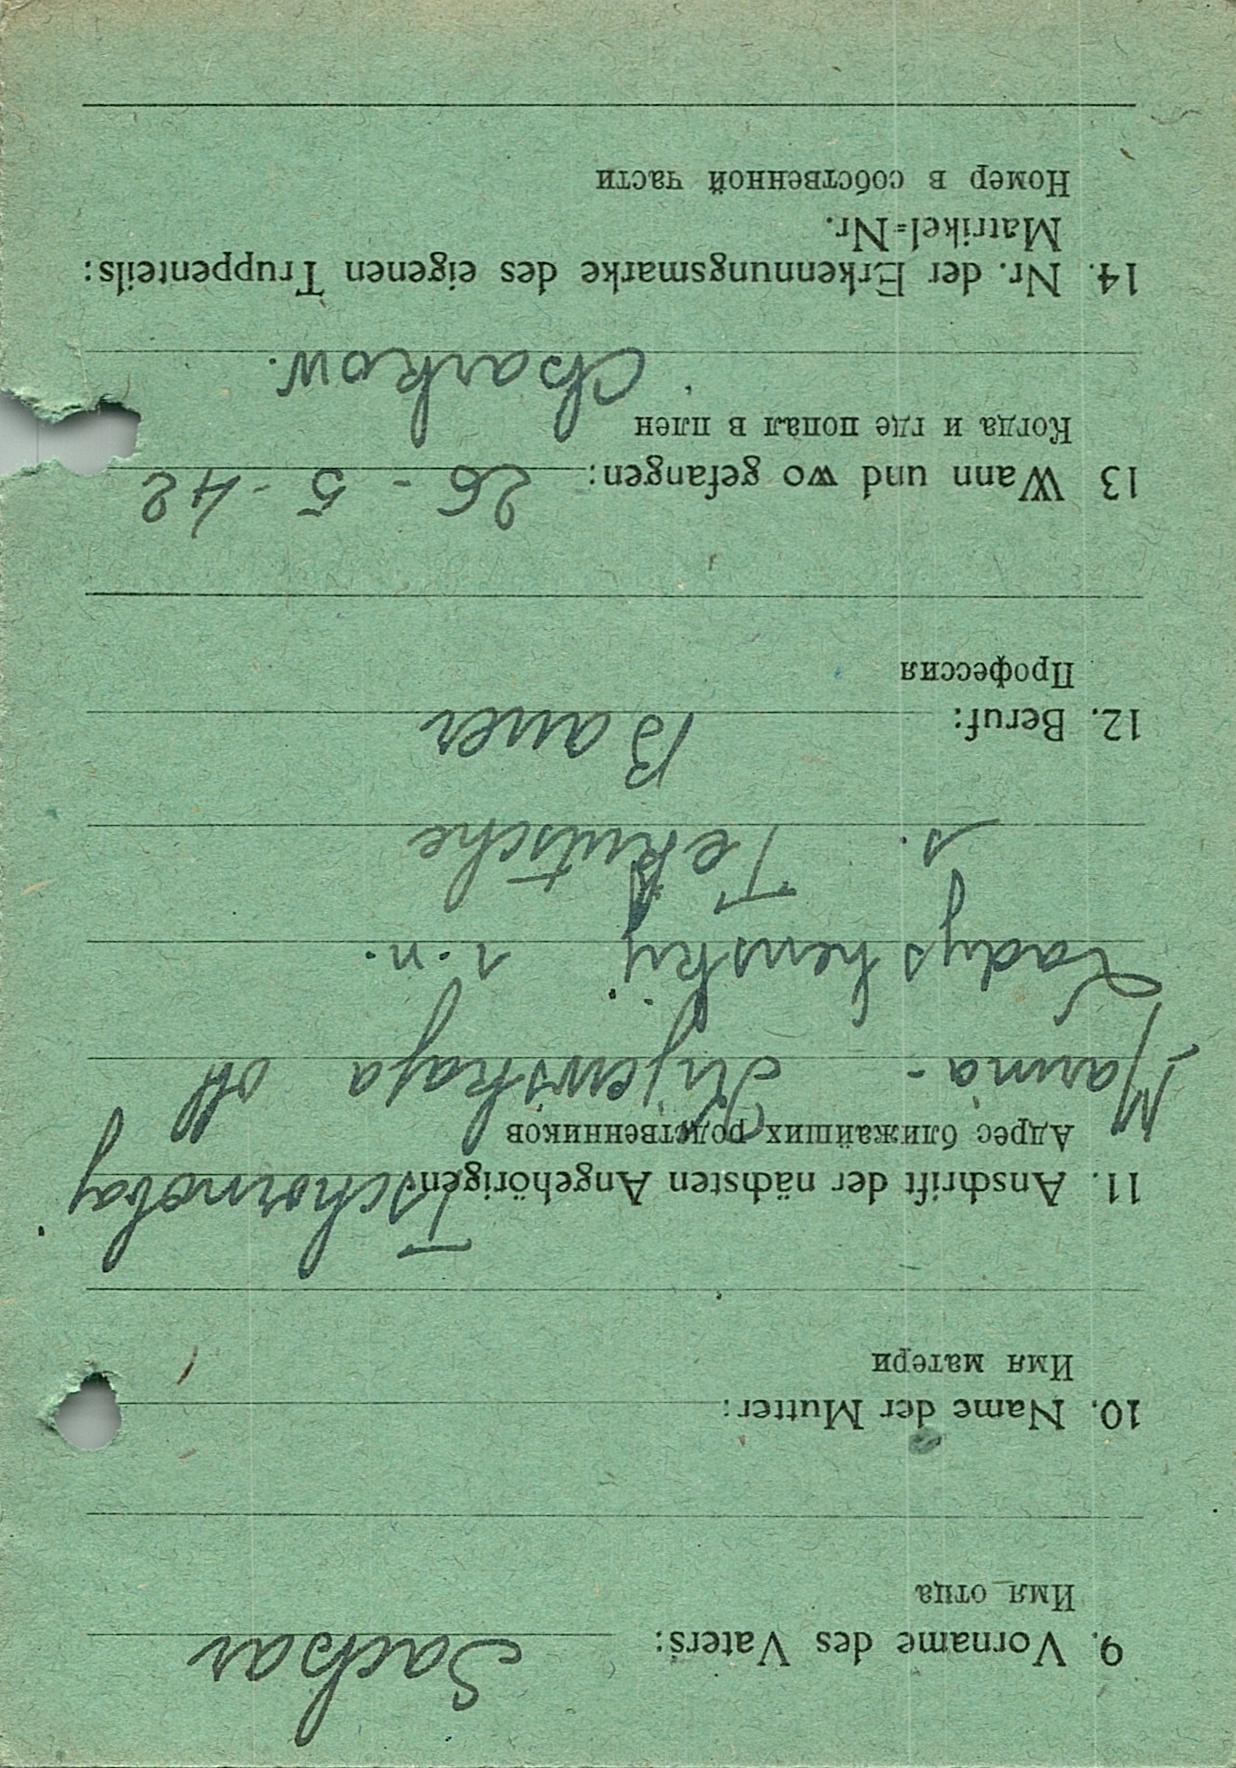 9. Vorname des Vaters: Sachar
Имя отца
10. Name der Mutter:
Имя матери
11. Anschrift der nächsten Angehörigen: Tschornobaj
Адрес ближайших родственников
Marina - Kijewskaja obl
Ladyshenskij r.n.
s. Tekutsche
12. Beruf: Bauer
Профессия
13 Wann und wo gefangen: 26 - 5 - 42
Когда и где попал в плен
Charkow.
14. Nr. der Erkennungsmarke des eigenen Truppenteils:
Matrikel=Nr.
Номер в собственной части